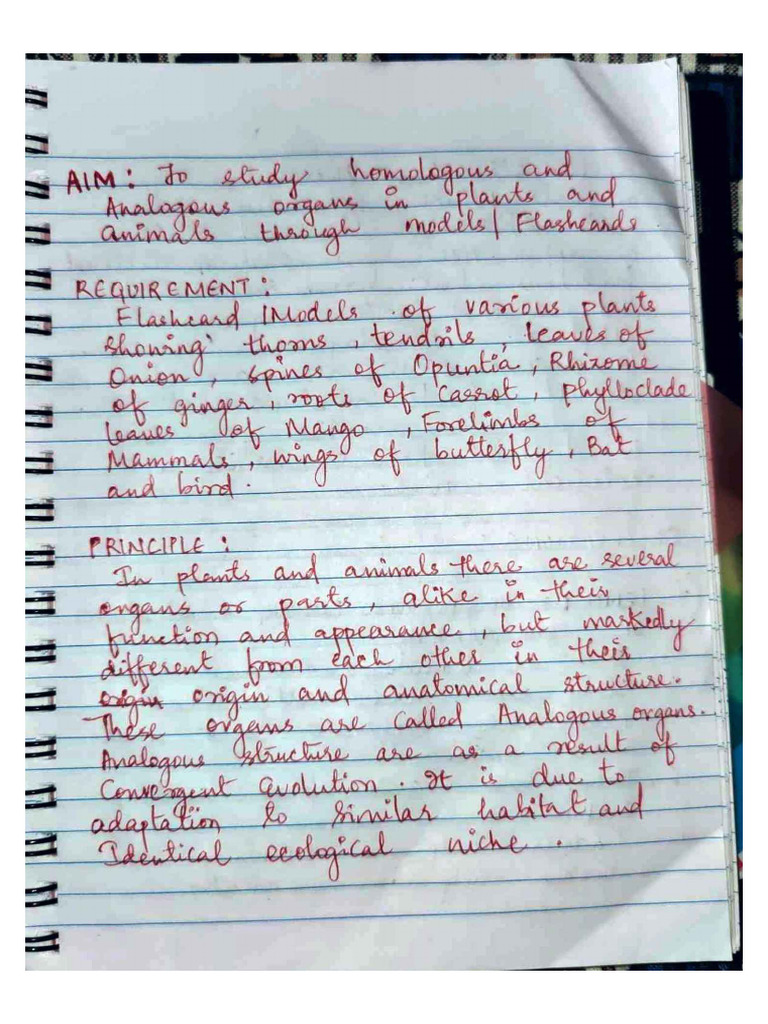 AIM: To study homologous and
Analogous organs in plants and
animals through models/Flashcards.
REQUIREMENT:
Flashcard /Models of various plants
showing: thorns, tendrils, leaves of
Onion, spines of Opuntia, Rhizome
of ginger, roots of carrot, phylloclade
leaves of Mango, Forelimbs of
Mammals, wings of butterfly, Bat
and bird.
PRINCIPLE:
In plants and animals there are several
organs or parts, alike in their
function and appearance, but markedly
different from each other in their
origin origin and anatomical structure.
These organs are called Analogous organs.
Analogous structure are as a result of
Convergent Evolution. It is due to
adaptation to similar habitat and
Identical ecological niche.